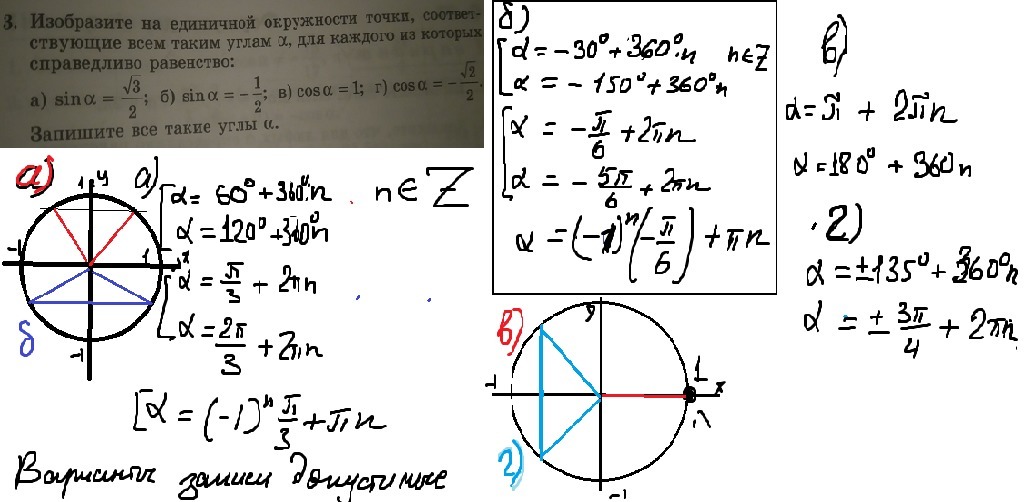 3. Изобразите на единичной окружности точки, соответ-
ствующие всем таким углам α, для каждого из которых
справедливо равенство:
а) sin α = √3/2; б) sin α = −1/2; в) cos α = 1; г) cos α = −√2/2.
Запишите все такие углы α.
а)
1 y
-1
1
x
б
-1
а)
α = 60° + 360°n n ∈ Z
α = 120° + 360°n
α = π/3 + 2πn
α = 2π/3 + 2πn
[α = (-1)ⁿ π/3 + πn
Варианты записи допустимые
б)
α = -30° + 360°n n ∈ Z
α = -150° + 360°n
α = -π/6 + 2πn
α = -5π/6 + 2πn
α = (-1)ⁿ(-π/6) + πn
в)
α = π + 2πn
α = 180° + 360n
2)
α = ±135° + 360°n
α = ± 3π/4 + 2πn
y
в)
-1
1
x
г)
-1